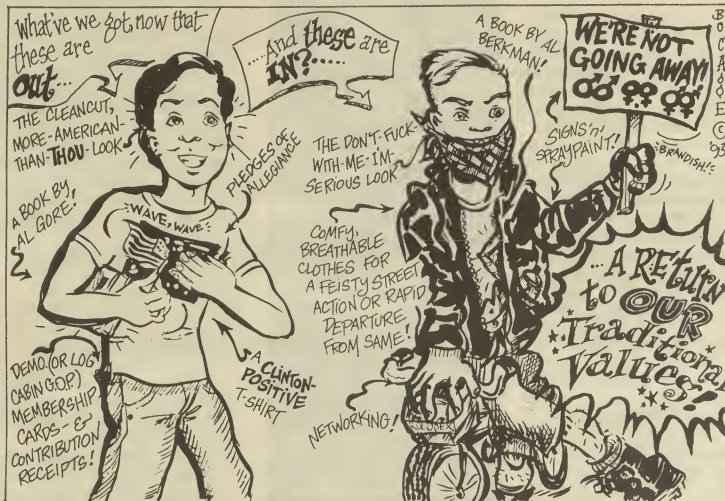 What've we got now that
these are
out...
THE CLEANCUT,
MORE-AMERICAN-
THAN-THOU-LOOK
A BOOK BY
AL GORE!
WAVE, WAVE!
PLEDGES OF
ALLEGIANCE
DEMO. (OR LOG
CABIN G.O.P.)
MEMBERSHIP
CARDS - &
CONTRIBUTION
RECEIPTS!
A CLINTON-
POSITIVE
T-SHIRT
....And these are
IN?.....
A BOOK BY AL
BERKMAN!
THE DON'T-FUCK-
WITH-ME-I'M-
SERIOUS LOOK
COMFY,
BREATHABLE
CLOTHES FOR
A FEISTY STREET
ACTION OR RAPID
DEPARTURE
FROM SAME!
NETWORKING!
WE'RE NOT
GOING AWAY!
SIGNS 'n'
SPRAYPAINT!
BRANDISH!
...A RETURN
to OUR
Traditional
Values!
'93